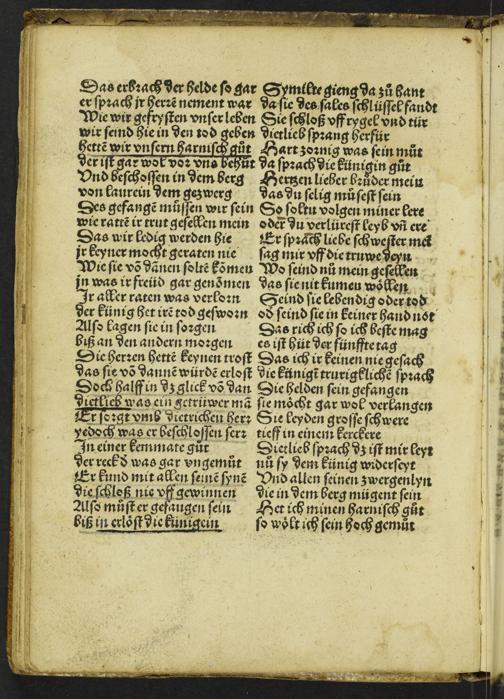 Das erbrach der helde so gar
er sprach jr herrē nement war
Wie wir gefrysten vnser leben
wir seind hie in den tod geben
hettē wir vnsern harnisch gůt
der ist gar wol vor vns behůt
Vnd beschossen in dem berg
von laurein dem gezwerg
Des gefangē müssen wir sein
wie rattē ir trut gesellen mein
Das wir ledig werden hie
jr keyner mocht geraten nie
Wie sie vō dānen soltē kōmen
jn was ir freüd gar genōmen
Ir aller raten was verlorn
der künig het irē tod gesworn
Also lagen sie in sorgen
biß an den andern morgen
Die herren hettē keynen trost
das sie vō dannē würdē erlost
Doch halff in dz glick vō dan
dietlieb was ein getrüwer mā
Er sorgt vmb dietrichen herz
yedoch was er beschlossen serz
In einer kemmate gůt
der reck d was gar vngemůt
Er kund mit allen seinē synē
die schloß nie vff gewinnen
Also můst er gefangen sein
biß in erlößt die künigein
Symilte gieng da zů hant
da sie des sales schlüssel fandt
Sie schloß vff rygel vnd tür
dietlieb sprang herfür
Hart zornig was sein můt
da sprach die künigin gůt
Hertzen lieber brůder mein
das du selig můsest sein
So soltu volgen miner lere
oder du verlürest leyb vñ ere
Er sprach liebe schwester mei
sag mir vff die truwe deyn
Wo seind nů mein gesellen
das sie nit kumen wöllen
Seind sie lebendig oder tod
od seind sie in keiner hand not
Das rich ich so ich beste mag
es ist hüt der fünffte tag
Das ich ir keinen nie gesach
die künigī trurigklichē sprach
Sie helden sein gefangen
sie möcht gar wol verlangen
Sie leyden grosse schwere
tieff in einem kerckere
Dietlieb sprach dz ist mir leyt
nů sy dem künig widerseyt
Vnd allen seinen zwergenlyn
die in dem berg mügent sein
Het ich minen harnisch gůt
so wölt ich sein hoch gemůt